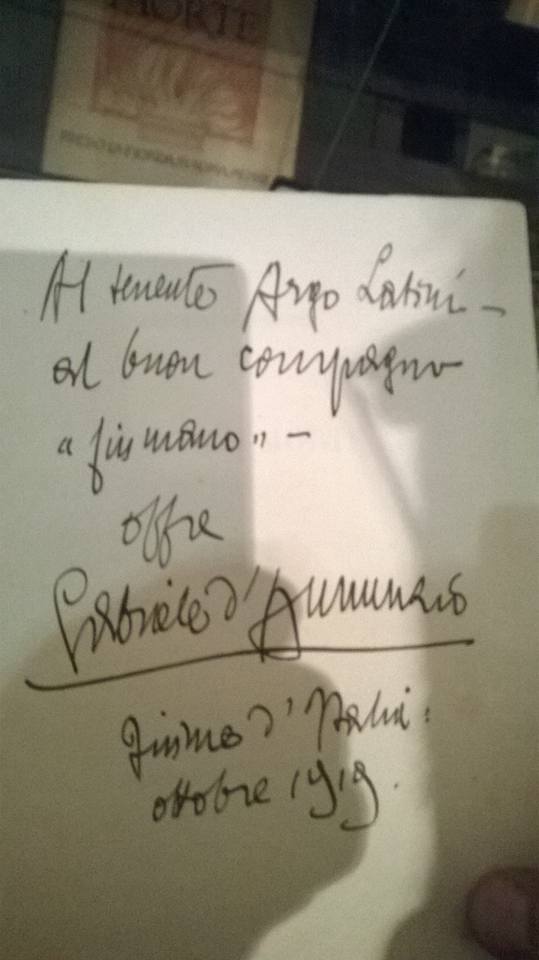 MORTE
Al tenente Argo Latini –
al buon compagno
“fiumano” –
offre
Gabriele d'Annunzio
Fiume d'Italia:
ottobre 1919.